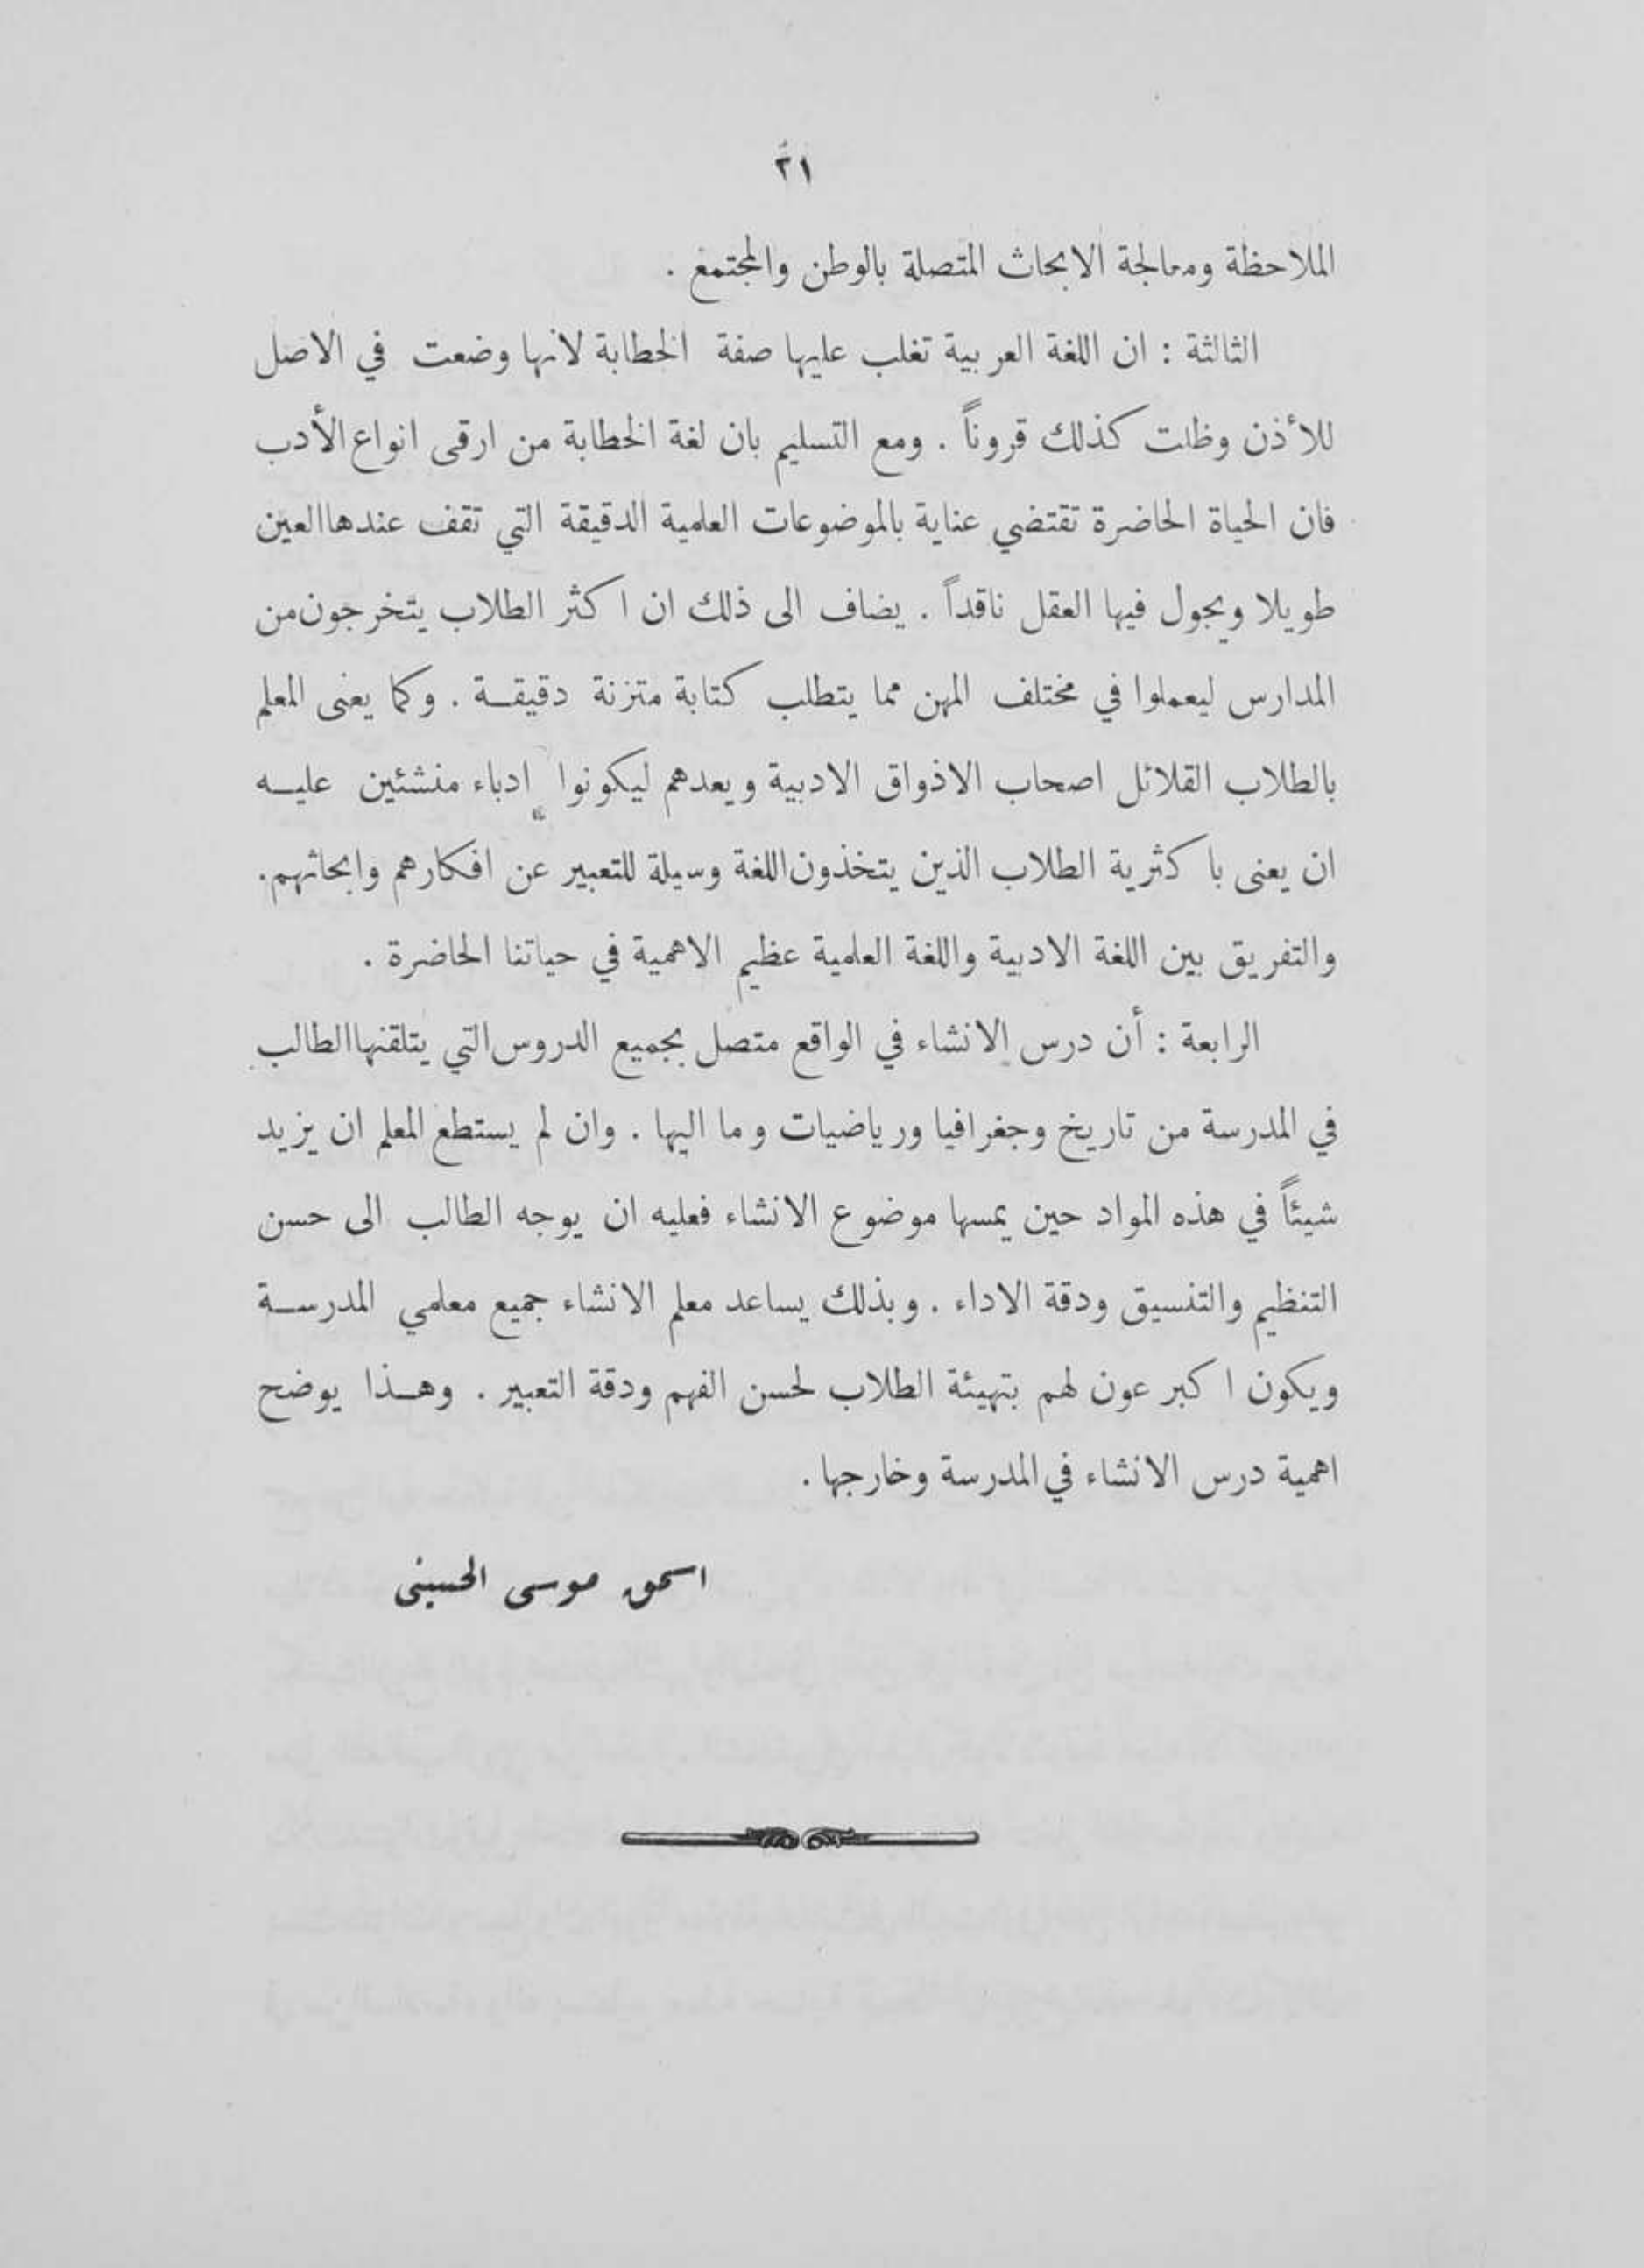 ٢١
الملاحظة ومعالجة الابحاث المتصلة بالوطن والمجتمع .
الثالثة : ان اللغة العربية تغلب عليها صفة الخطابة لانها وضعت في الاصل
للأذن وظلت كذلك قروناً . ومع التسليم بان لغة الخطابة من ارقى انواع الأدب
فان الحياة الحاضرة تقتضي عناية بالموضوعات العلمية الدقيقة التي تقف عندها العين
طويلا ويجول فيها العقل ناقداً . يضاف الى ذلك ان اكثر الطلاب يتخرجون من
المدارس ليعملوا في مختلف المهن مما يتطلب كتابة متزنة دقيقة . وكما يعنى المعلم
بالطلاب القلائل اصحاب الاذواق الادبية ويعدهم ليكونوا ادباء منشئين عليه
ان يعنى باكثرية الطلاب الذين يتخذون اللغة وسيلة للتعبير عن افكارهم وابحاثهم.
والتفريق بين اللغة الادبية واللغة العلمية عظيم الاهمية في حياتنا الحاضرة .
الرابعة : أن درس الانشاء في الواقع متصل بجميع الدروس التي يتلقنها الطالب
في المدرسة من تاريخ وجغرافيا ورياضيات وما اليها . وان لم يستطع المعلم ان يزيد
شيئاً في هذه المواد حين يمسها موضوع الانشاء فعليه ان يوجه الطالب الى حسن
التنظيم والتنسيق ودقة الاداء . وبذلك يساعد معلم الانشاء جميع معلمي المدرسة
ويكون اكبر عون لهم بتهيئة الطلاب لحسن الفهم ودقة التعبير . وهذا يوضح
اهمية درس الانشاء في المدرسة وخارجها .
اسحق موسى الحسيني